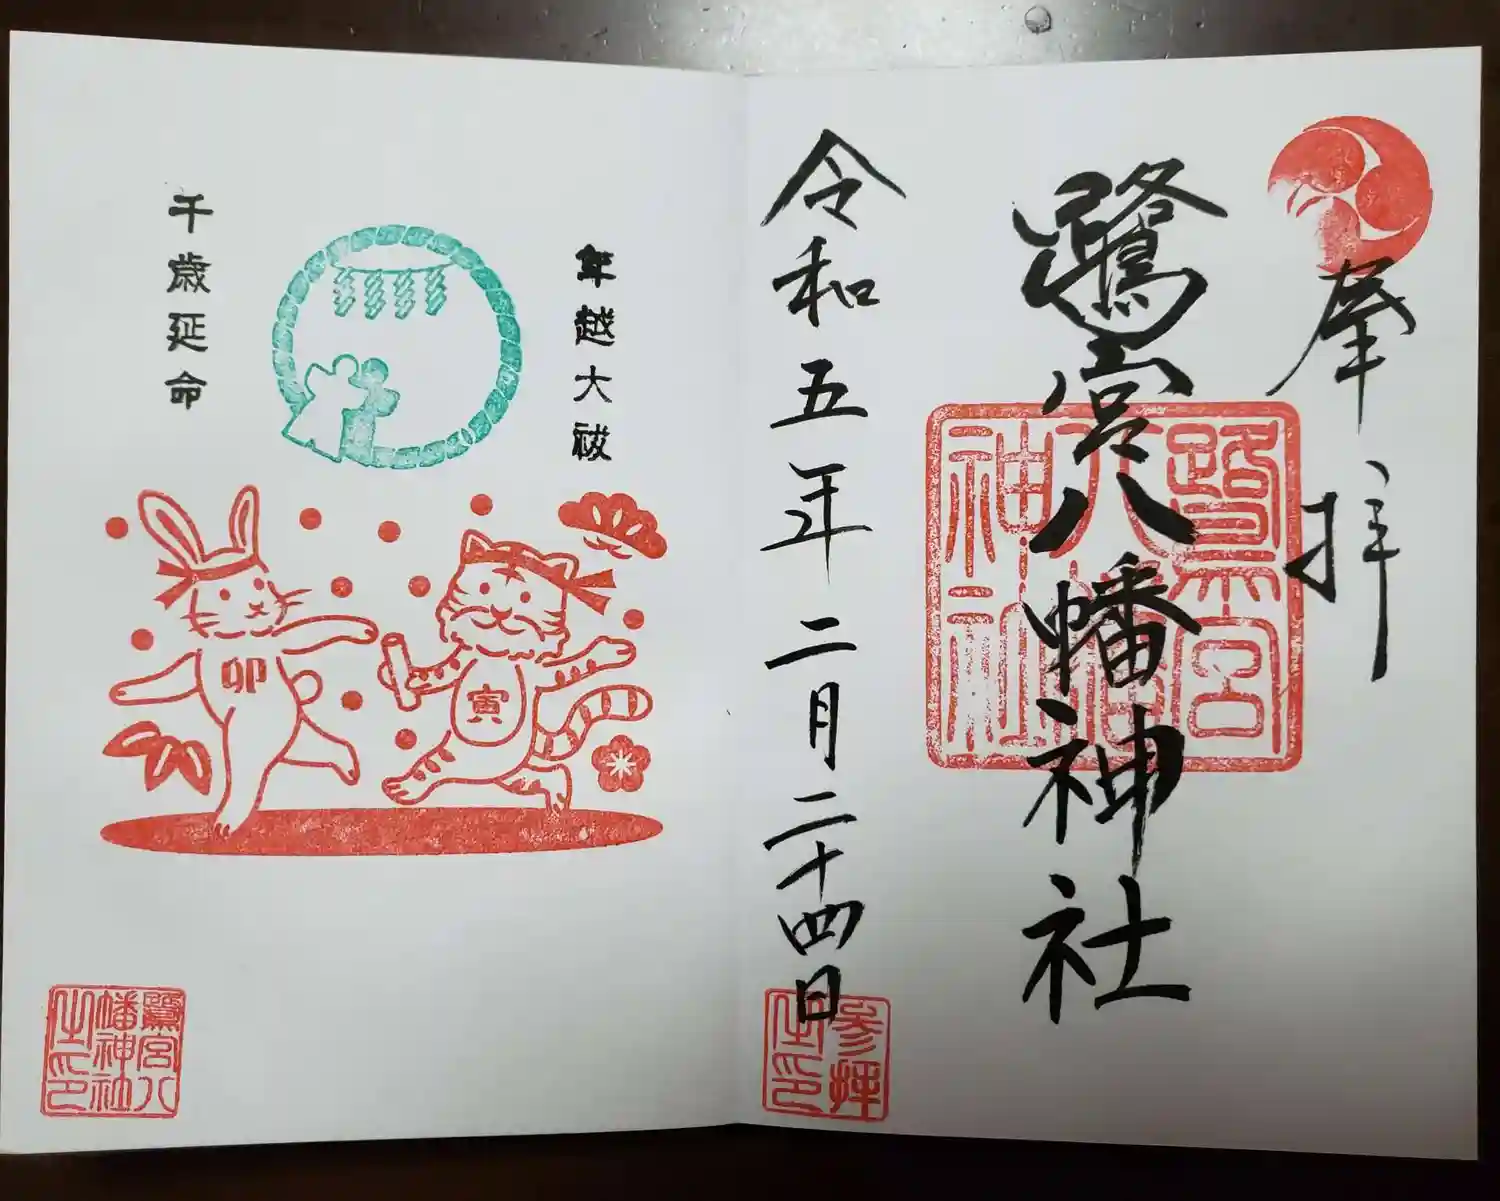 奉拝
鷺宮八幡神社
鷺宮八幡神社
令和五年二月二十四日
参拝之印
年越大祓
千歳延命
卯
寅
鷺宮八幡神社之印